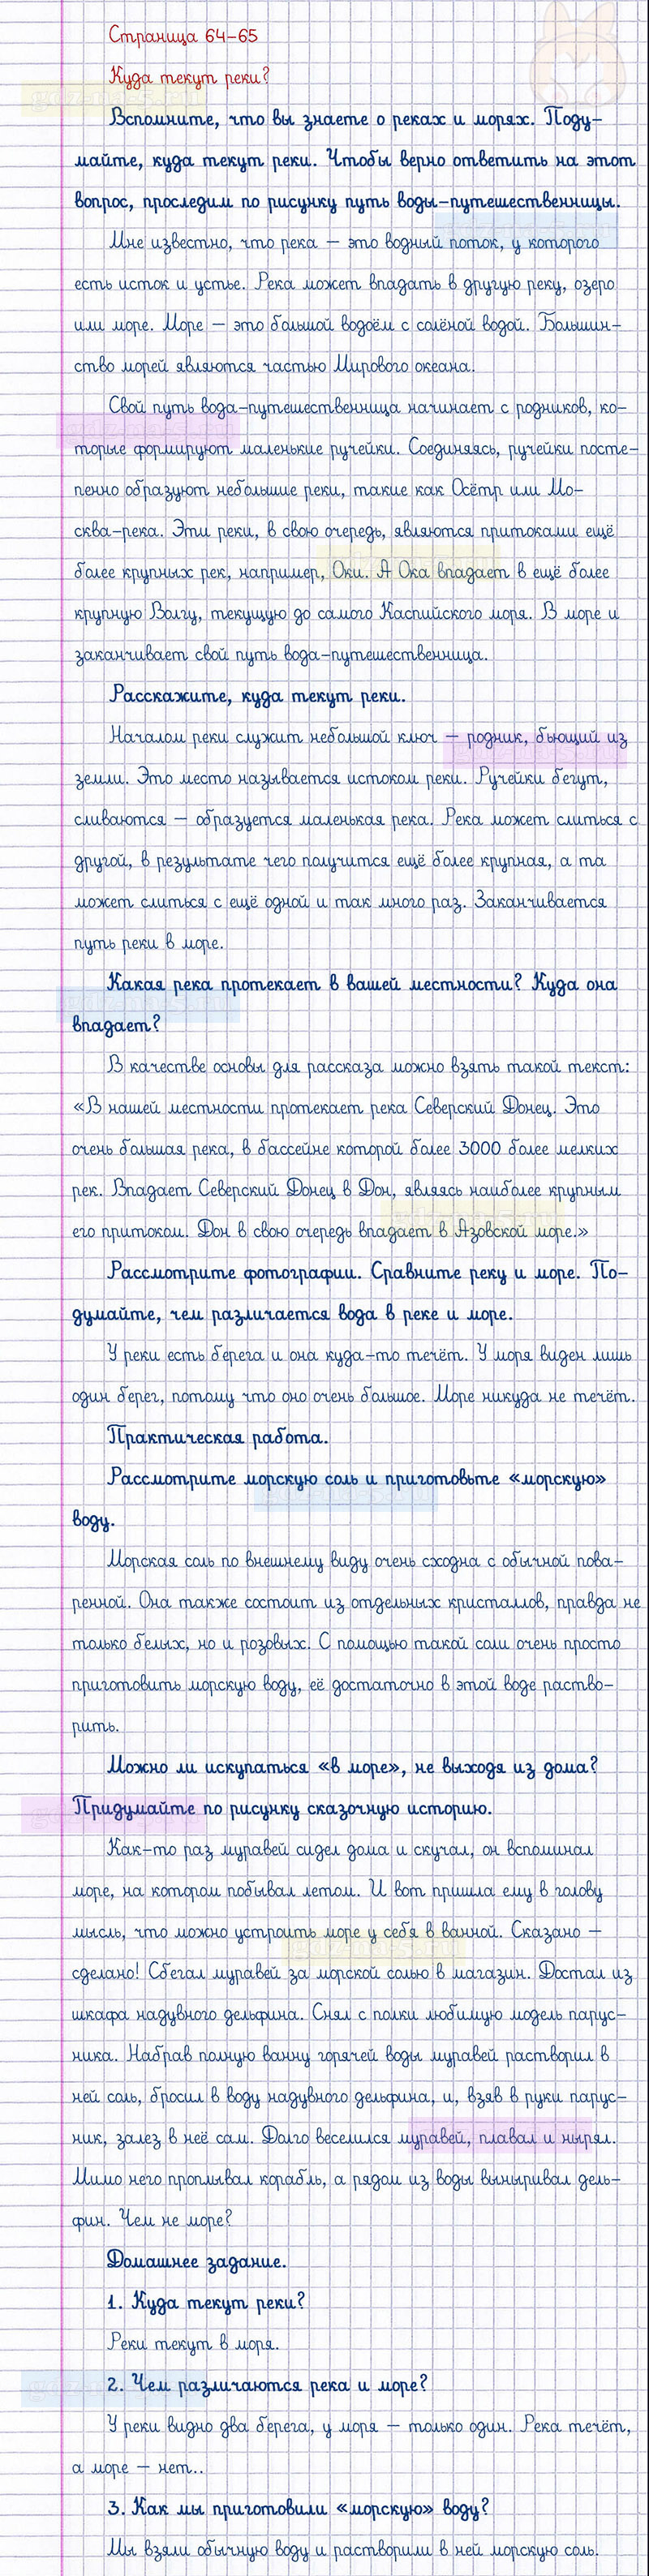 Страница 64-65
Куда текут реки?
Вспомните, что вы знаете о реках и морях. Поду-
майте, куда текут реки. Чтобы верно ответить на этот
вопрос, проследим по рисунку путь воды-путешественницы.
Мне известно, что река – это водный поток, у которого
есть исток и устье. Река может впадать в другую реку, озеро
или море. Море – это большой водоём с солёной водой. Большин-
ство морей являются частью Мирового океана.
Свой путь вода-путешественница начинает с родников, ко-
торые формируют маленькие ручейки. Соединяясь, ручейки посте-
пенно образуют небольшие реки, такие как Осётр или Мо-
сква-река. Эти реки, в свою очередь, являются притоками ещё
более крупных рек, например, Оки. А Ока впадает в ещё более
крупную Волгу, текущую до самого Каспийского моря. В море и
заканчивает свой путь вода-путешественница.
Расскажите, куда текут реки.
Началом реки служит небольшой ключ – родник, бьющий из
земли. Это место называется истоком реки. Ручейки бегут,
сливаются – образуется маленькая река. Река может слиться с
другой, в результате чего получится ещё более крупная, а та
может слиться с ещё одной и так много раз. Заканчивается
путь реки в море.
Какая река протекает в вашей местности? Куда она
впадает?
В качестве основы для рассказа можно взять такой текст:
«В нашей местности протекает река Северский Донец. Это
очень большая река, в бассейне которой более 3000 более мелких
рек. Впадает Северский Донец в Дон, являясь наиболее крупным
его притоком. Дон в свою очередь впадает в Азовской море.»
Рассмотрите фотографии. Сравните реку и море. По-
думайте, чем различается вода в реке и море.
У реки есть берега и она куда-то течёт. У моря виден лишь
один берег, потому что оно очень большое. Море никуда не течёт.
Практическая работа.
Рассмотрите морскую соль и приготовьте «морскую»
воду.
Морская соль по внешнему виду очень сходна с обычной пова-
ренной. Она также состоит из отдельных кристаллов, правда не
только белых, но и розовых. С помощью такой соли очень просто
приготовить морскую воду, её достаточно в этой воде раство-
рить.
Можно ли искупаться «в море», не выходя из дома?
Придумайте по рисунку сказочную историю.
Как-то раз муравей сидел дома и скучал, он вспоминал
море, на котором побывал летом. И вот пришла ему в голову
мысль, что можно устроить море у себя в ванной. Сказано –
сделано! Сбегал муравей за морской солью в магазин. Достал из
шкафа надувного дельфина. Снял с полки любимую модель парус-
ника. Набрав полную ванну горячей воды муравей растворил в
ней соль, бросил в воду надувного дельфина, и, взяв в руки парус-
ник, залез в неё сам. Долго веселился муравей, плавал и нырял.
Мимо него проплывал корабль, а рядом из воды выныривал дель-
фин. Чем не море?
Домашнее задание.
1. Куда текут реки?
Реки текут в моря.
2. Чем различаются река и море?
У реки видно два берега, у моря – только один. Река течёт,
а море – нет..
3. Как мы приготовили «морскую» воду?
Мы взяли обычную воду и растворили в ней морскую соль.